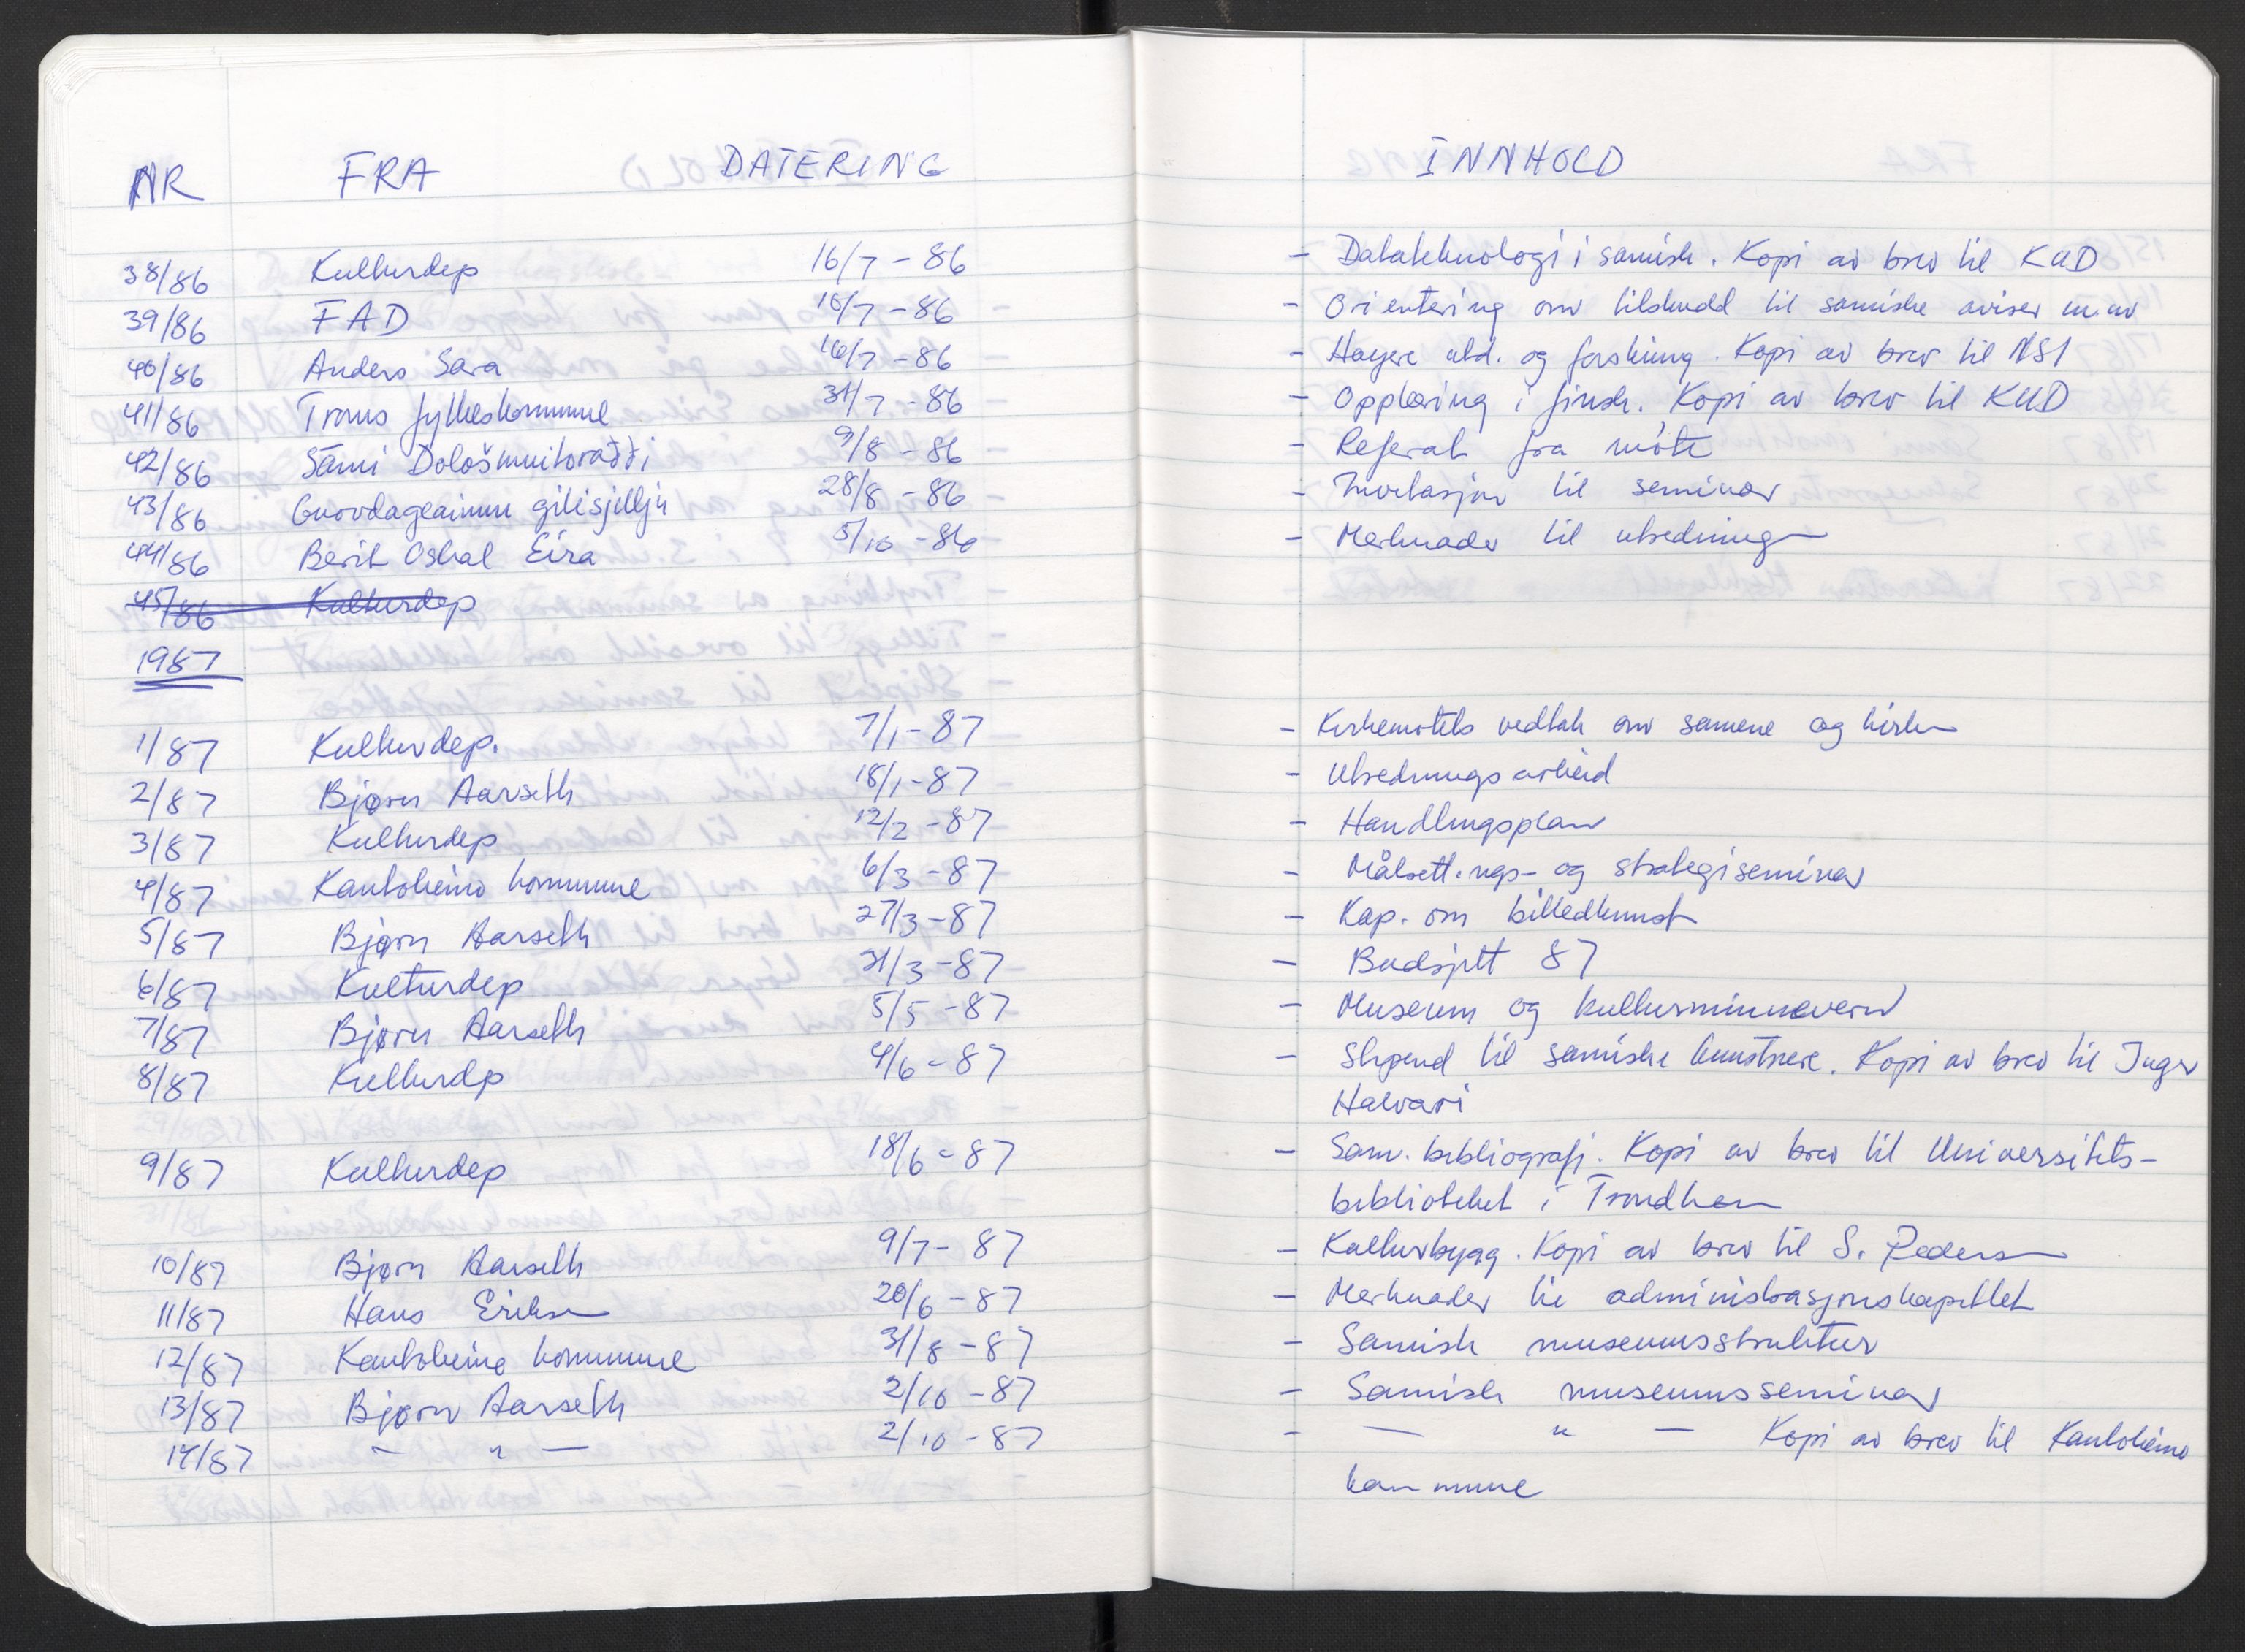 NR FRA DATERING INNHOLD
38/86 Kulturdep 16/7 - 86 - Datateknologi i samisk. Kopi av brev til KUD
39/86 FAD 16/7 - 86 - Orientering om tilskudd til samiske aviser m.m
40/86 Anders Sara 16/7 - 86 - Høyere utd. og forskning. Kopi av brev til NSI
41/86 Troms fylkeskommune 31/7 - 86 - Opplæring i finsk. Kopi av brev til KUD
42/86 Sámi Dološmuitoráđđi 9/8 - 86 - Referat fra møte
43/86 Guovdageainnu gilisjillju 28/8 - 86 - Invitasjon til seminar
44/86 Berit Oskal Eira 5/10 - 86 - Merknader til utredningen
45/86 Kulturdep
1987
1/87 Kulturdep. 7/1 - 87 - Kirkemøtets vedtak om samene og kirken
2/87 Bjørn Aarseth 18/1 - 87 - Utredningsarbeid
3/87 Kulturdep 12/2 - 87 - Handlingsplan
4/87 Kautokeino kommune 6/3 - 87 - Målsettings- og strategiseminar
5/87 Bjørn Aarseth 27/3 - 87 - Kap. om billedkunst
6/87 Kulturdep 31/3 - 87 - Budsjett 87
7/87 Bjørn Aarseth 5/5 - 87 - Museum og kulturminnevern
8/87 Kulturdp 4/6 - 87 - Stipend til samiske kunstnere. Kopi av brev til Inger
Halvari
9/87 Kulturdep 18/6 - 87 - Sam. bibliografi. Kopi av brev til Universitets-
biblioteket i Trondheim
10/87 Bjørn Aarseth 9/7 - 87 - Kulturbygg. Kopi av brev til S. Pedersen
11/87 Hans Eriksen 20/6 - 87 - Merknader til administrasjonskapitlet
12/87 Kautokeino kommune 31/8 - 87 - Samisk museumsstruktur
13/87 Bjørn Aarseth 2/10 - 87 - Samisk museumsseminar
14/87 — " — 2/10 - 87 - — " — Kopi av brev til Kautokeino
kommune